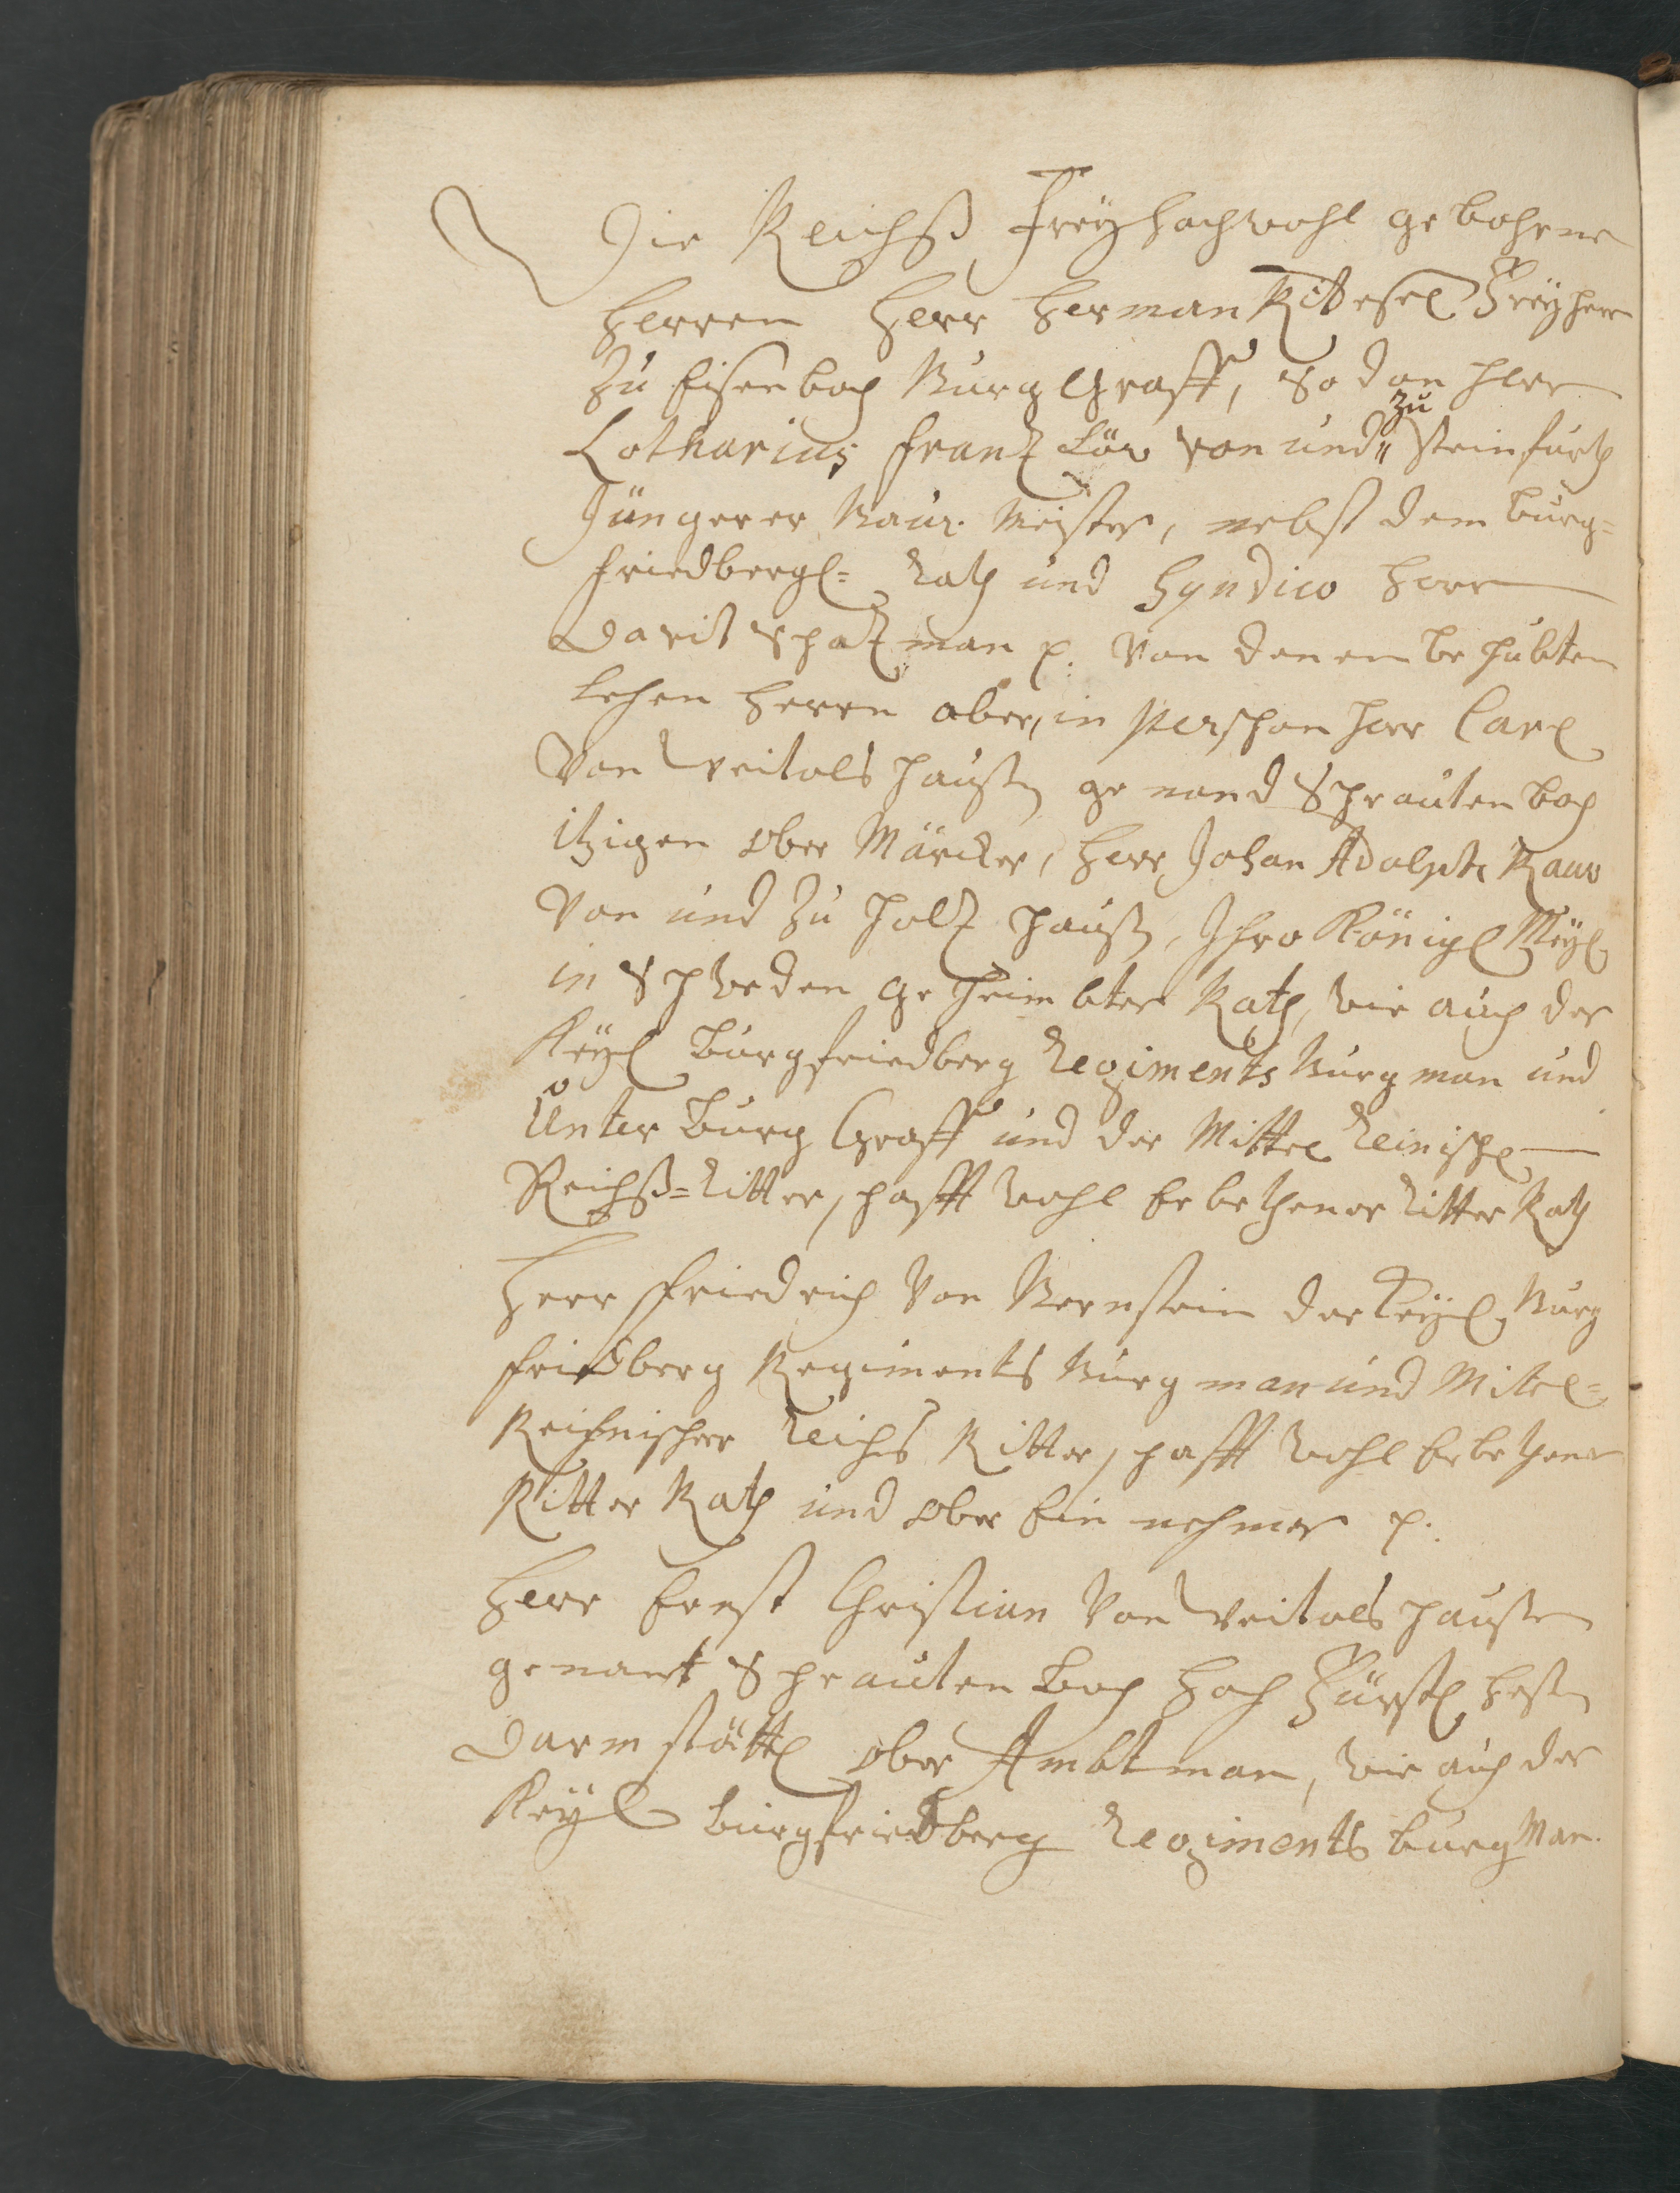 Die Reichß Freyhochwohl gebohrne
Herren Herr Herman Rittesel Freyherr
zu Eisenbach Burg Graff, so dan Herr
Lotharius Frantz Löw von und zu Steinfurth
Jüngerer Bau Meister, nebst dem Burg=
friedbergl= Rath und Syndico Herr
Davit Schatzman p. Von denen be hübten
Lehen Herrn aber, in Perschon Herr Carl
Von Weitolshaußen genand Schrautenbach
itzigen Ober Märcker, Herr Johan Adolph Rauw
Von und zu Holtzhaußen, Ihro Königl Mäyl
in Schweden geheimbter Rath, wie auch der
Keyl Burgfriedberg Regiments Burgman und
Unter Burg Graff und der Mittel Reinische
Reichß=Ritterschafft wohl Erbethener Ritter Rath
Herr Friedrich Von Bernstein der Keyl Burg
friedberg Regiments Burgman und Mittel=
Reihnischer Reichs Ritterschafft wohl Erbethener
Ritter Rath und Ober Einnehmer p.
Herr Ernst Christian Von Weitolshaußen
genant Schrautenbach Hoch Fürstl Heßen
Darmstättl Ober Ambtman, wie auch der
Keyl Burgfriedberg Regiments Burg Man.